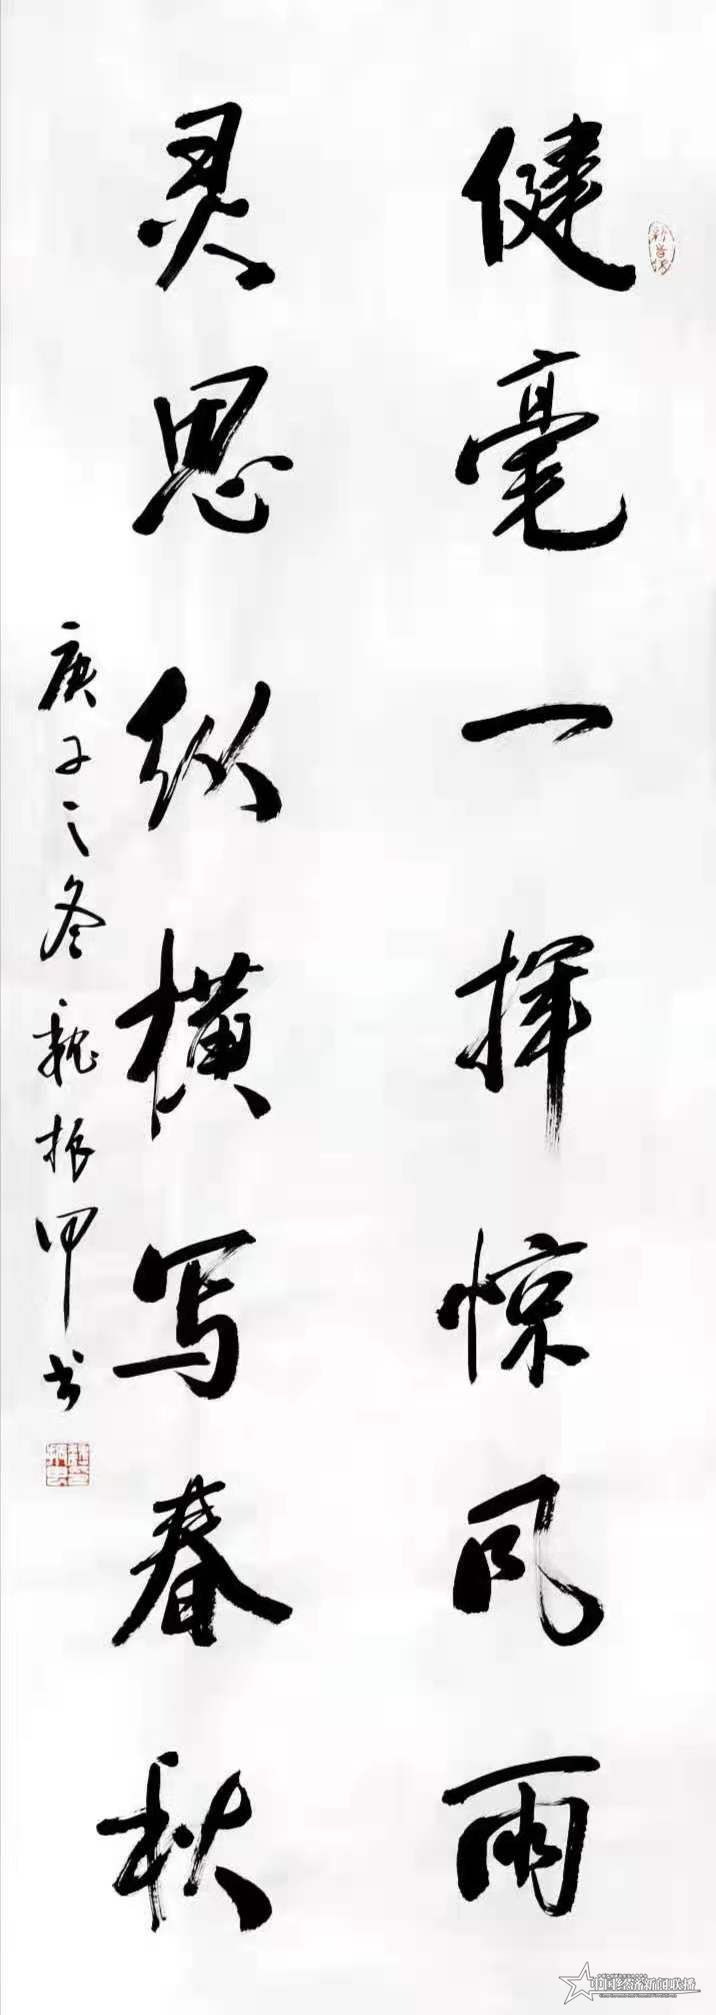 健毫一挥惊风雨
灵思纵横写春秋
庚子之冬魏振甲书
中国经济新闻联播